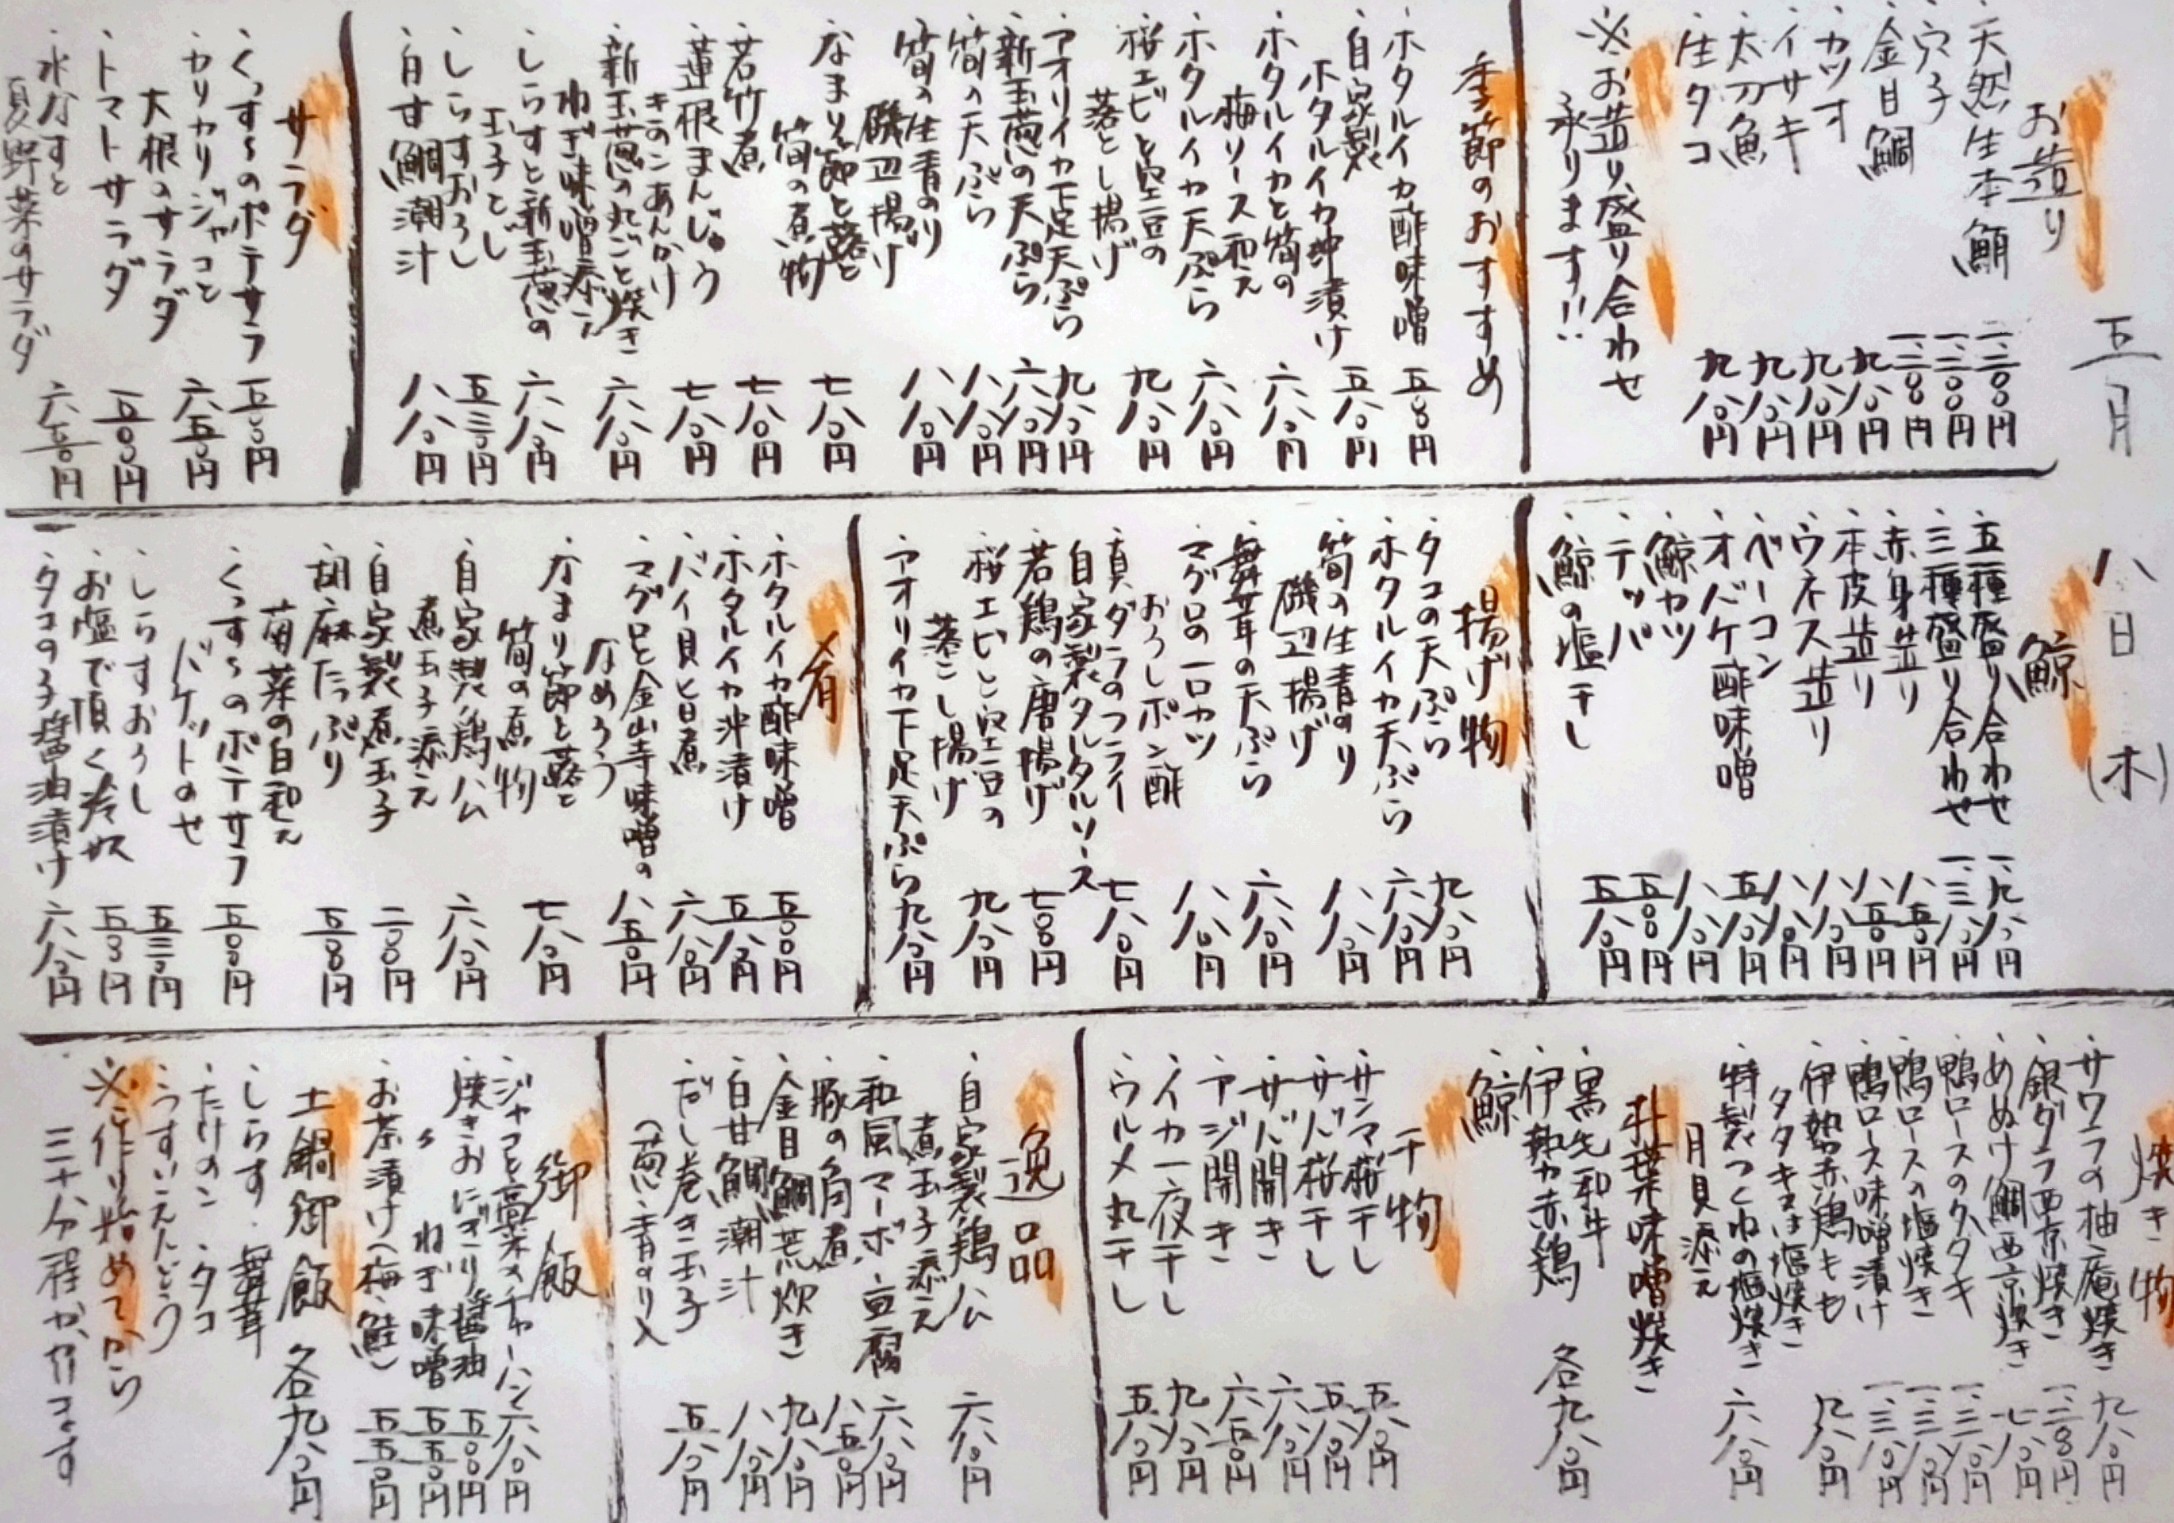 五月 八日(木)
お造り
・天然生本鮪 一、二〇〇円
・穴子 一、二〇〇円
・金目鯛 一、二〇〇円
・カツオ 九八〇円
・イサキ 九八〇円
・太刀魚 九八〇円
・生タコ 九八〇円
※お造り盛り合わせ
承ります!!
季節のおすすめ
・ホタルイカ酢味噌 五〇〇円
・自家製
ホタルイカ沖漬け 五八〇円
・ホタルイカと筍の
梅ソース和え 六八〇円
・ホタルイカ天ぷら 六八〇円
・桜エビと空豆の
落とし揚げ 九八〇円
・アオリイカ下足天ぷら 九八〇円
・新玉葱の天ぷら 六八〇円
・筍の天ぷら 八八〇円
・筍の生青のり
磯辺揚げ 八八〇円
・なまり節と蕗と
筍の煮物 七八〇円
・若竹煮 七八〇円
・蓮根まんじゅう
きのこあんかけ 七八〇円
・新玉葱の丸ごと焼き
ねぎ味噌添え 六八〇円
・しらすと新玉葱の
玉子とじ 六八〇円
・しらすおろし 五三〇円
・白甘鯛潮汁 八八〇円
サラダ
・くっすぅのポテサラ 五〇〇円
・カリカリジャコと
大根のサラダ 六五〇円
・トマトサラダ 五〇〇円
・水なすと
夏野菜のサラダ 六五〇円
鯨
・五種盛り合わせ 一、九八〇円
・三種盛り合わせ 一、三八〇円
・赤身造り 八五〇円
・本皮造り 八五〇円
・ウネス造り 八八〇円
・ベーコン 八八〇円
・オバケ酢味噌 五八〇円
・鯨カツ 八八〇円
・テッパ 五〇〇円
・鯨の塩干し 五八〇円
揚げ物
・タコの天ぷら 九八〇円
・ホタルイカ天ぷら 六八〇円
・筍の生青のり
磯辺揚げ 八八〇円
・舞茸の天ぷら 六八〇円
・マグロの一口カツ
おろしポン酢 八八〇円
・真ダラのフライ
自家製タルタルソース 七八〇円
・若鶏の唐揚げ 七〇〇円
・桜エビと空豆の
落とし揚げ 九八〇円
・アオリイカ下足天ぷら 九八〇円
肴
・ホタルイカ酢味噌 五〇〇円
・ホタルイカ沖漬け 五八〇円
・バイ貝と旨煮 六八〇円
・マグロと金山寺味噌の
なめろう 八五〇円
・なまり節と蕗と
筍の煮物 七八〇円
・自家製鶏ハム
煮玉子添え 六八〇円
・自家製煮玉子 二〇〇円
・胡麻たっぷり
菊菜の白和え 五〇〇円
・くっすぅのポテサラ
バケットのせ 五〇〇円
・しらすおろし 五三〇円
・お塩で頂く冷奴 五〇〇円
・タコの子醤油漬け 六八〇円
焼き物
・サワラの柚庵焼き 九八〇円
・銀ダラ西京焼き 一、二〇〇円
・めぬけ鯛西京焼き 一、一八〇円
・鴨ロースのタタキ 一、三八〇円
・鴨ロースの塩焼き 一、三八〇円
・鴨ロース味噌漬け 一、三八〇円
・伊勢赤鶏もも
タタキ又は塩焼き 九八〇円
・特製つくねの塩焼き
月見添え 六八〇円
朴葉味噌焼き
・黒毛和牛
・伊勢赤鶏 各九八〇円
・鯨
干物
・サンマ桜干し 五八〇円
・サバ桜干し 五八〇円
・サバ開き 六八〇円
・アジ開き 六五〇円
・イカ一夜干し 九八〇円
・ウルメ丸干し 五八〇円
逸品
・自家製鶏ハム
煮玉子添え 六八〇円
・和風マーボ豆腐 六八〇円
・豚の角煮 八五〇円
・金目鯛荒炊き 九八〇円
・白甘鯛潮汁 八八〇円
・だし巻き玉子
(葱・青のり入) 五八〇円
御飯
・ジャコと高菜のチャーハン 六八〇円
・焼きおにぎり醤油 五〇〇円
〃 ねぎ味噌 五五〇円
・お茶漬け(梅・鮭) 五五〇円
土鍋御飯 各九八〇円
・しらす・舞茸
・たけのこ・タコ
・うすいえんどう
※作り始めてから
三十分程かかります